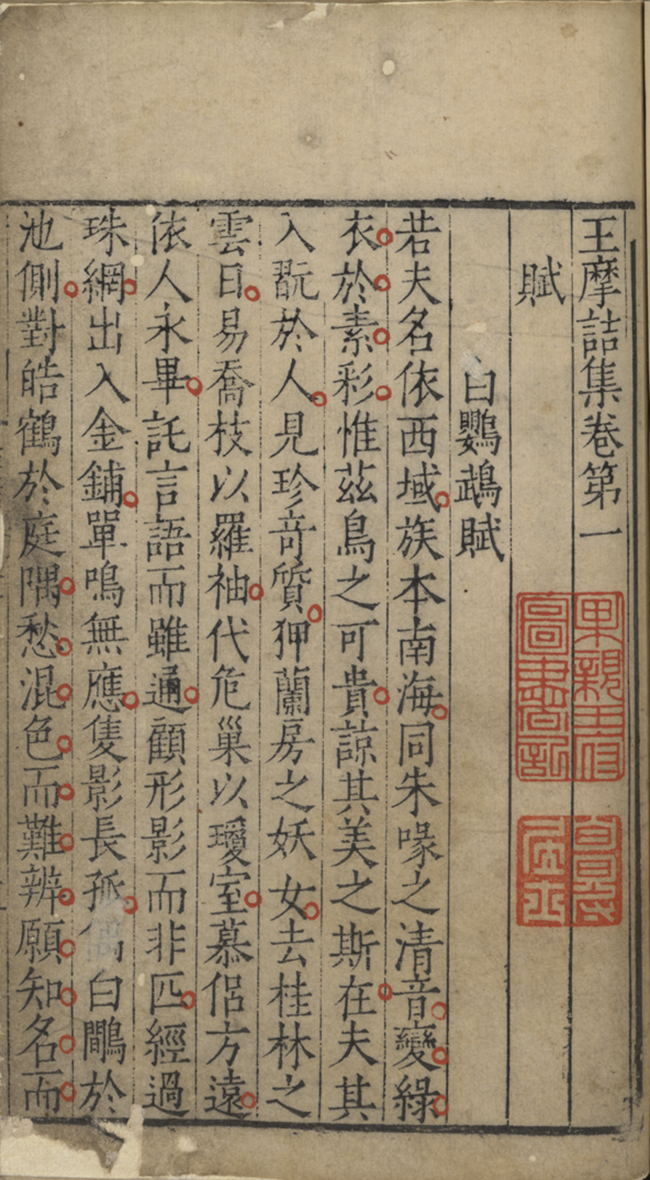 王摩詰集卷第一
賦
白鸚鵡賦
若夫名依西域族本南海同朱喙之清音變綠
衣於素彩惟茲鳥之可貴諒其美之斯在夫其
入翫於人見珍奇質狎蘭房之妖女去桂林之
雲日易喬枝以羅袖代危巢以瓊室慕侶方遠
依人永畢託言語而雖通顧形影而非匹經過
珠網出入金鋪單鳴無應隻影長孤偶白鷴於
池側對皓鶴於庭隅愁混色而難辨願知名而
果親王府圖書記